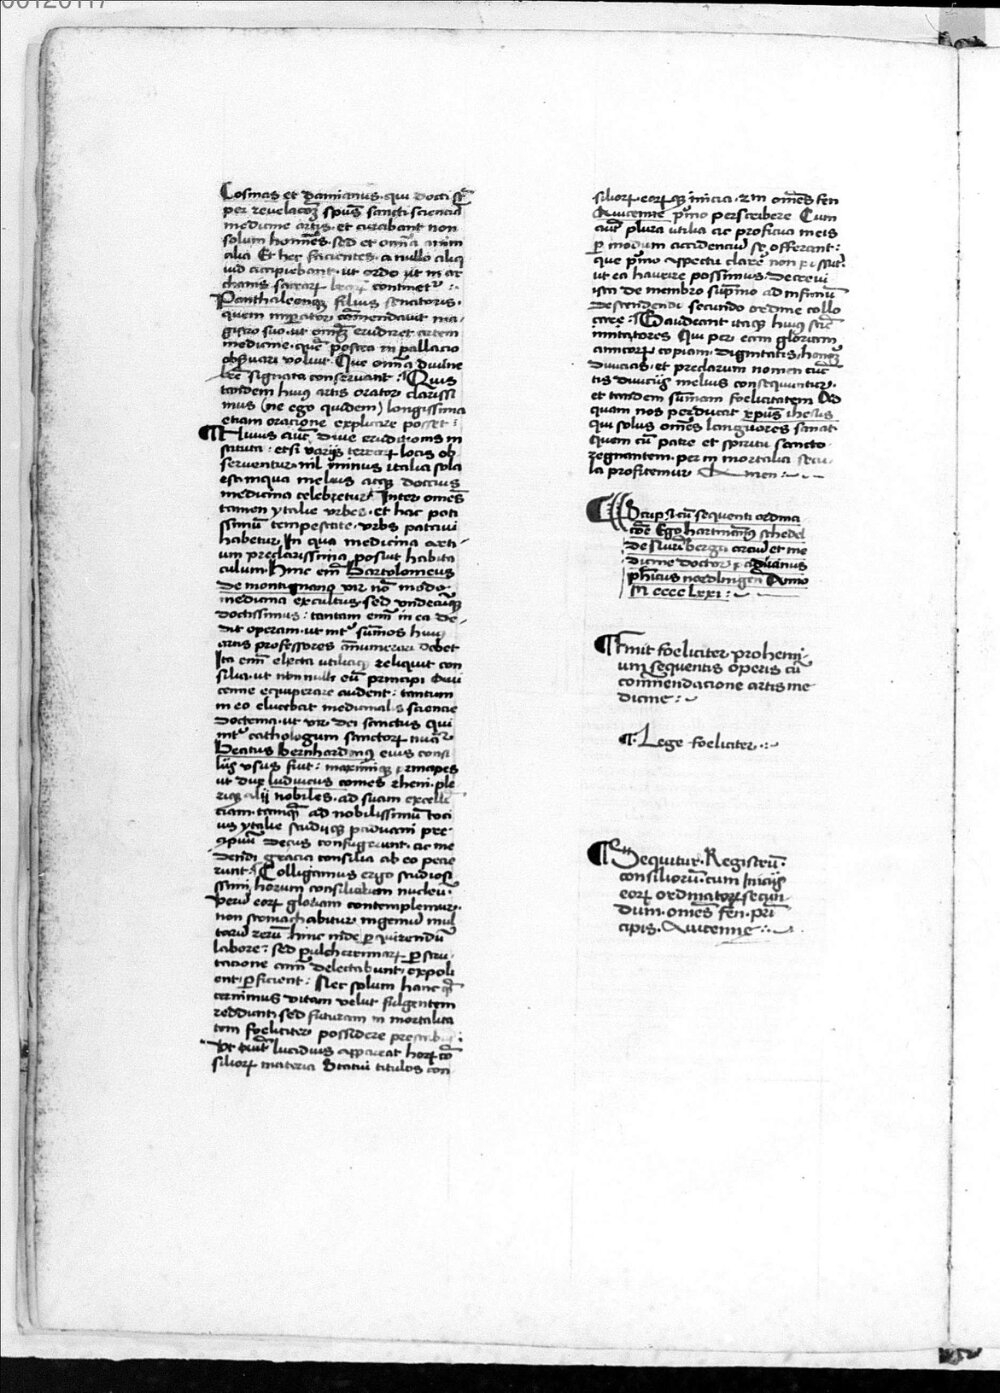 00120117
Cosmas et Damianus · qui docti
per revelacoȝ spūs sancti sciencia
medicine artis · et curabant non
solum homīes · sed et omīa anim
alia Et hec facientes · a nullo aliqͥ
vid accipiebant · ut ordo
continetʳ :
Panthaleonqȝ filius senatoris ·
quem imꝑator cōmendavit ma
gistro suo · ut eum erudiret artem
medicine · quē postea in pallacio
obsᵉvari voluit · Que omīa divine
signata conservant : Quis
tandem huius artis orator clarissi
mus (ne ego quidem) longissima
etiam oracione explicare posset :
¶ Huius autē dive erudicionis in
stituta : etsi varijs terrarꝝ locis ob
serventur · nil minus italia sola
est inqua melius atqȝ doctius
medicina celebretur · Inter omēs
tamen ytalie vrbes · et hac poti
ssimū tempestate · vrbs patavi
habetur In qua medicina arti-
um preclarissima posuit habita
culum · Hinc eīm Bartolomeus
de montagnana vir nō modo ·
medicina excultus · sed vndecūqȝ
doctissimus : tantam eīm in ea de-
dit operam · ut intʳ sūmos huiꝰ
artis professores annumerari debet
Ita eīm electa utiliaqȝ reliquit con
silia · ut nonnulli eū principi Avi
cenne equiperare audent : tantum
in eo elucebat medicinalis sciencie
doctrina · ut vir dei sanctus qui
intʳ cathologum sanctorꝝ
Beatus Bernhardinꝰ eius consi
lijs vsus fuit : maximiqȝ principes
ut dux ludvicus comes rheni · ple
riqȝ alij nobiles · ad suam excellē
ciam · tamqȝ ad nobilissimū toci
us ytalie studijqȝ paduani pre-
cipuū decus confugerunt · ac me
dendi gracia consilia ab eo pecie
runt · Colligamus ergo studiosi
ssimi horum consiliorum nucleū ·
Verū eorꝝ gloriam contemplemur ·
non stomachabitur ingeniū mul
tarū rerū hinc inde ꝑquirendū
labore : sed pulcherrimarꝝ ꝑscru
tacione animi delectabunt · expoli
ent · ꝑficient : Nec solum hanc qͣ
cernimus vitam velut fulgentem
reddunt · sed futuram in mortalita
tem foeliciter possidere
Vt autē lucidius appareat horꝝ cō
siliorꝝ materia Statui titulos con
siliorꝝ eorꝝqȝ inicia · in omēs fen
Avicenne pͥmo perscribere Cum
autē plura utilia ac proficua meis
ꝑ modum accidenciū se offerant :
que pͥmo aspectu clare non possūt ·
ut ea haurire possimus · Decrevi
ista de membro supͥmo ad infimū
descendendi secundo ordine collo
care : Gaudeant itaqȝ huius scīe
imitatores Qui per eam gloriam
amicorꝝ copiam · dignitatis · honorē
divicias · et preclarum nomen cūc
tis divicijs melius consequuntur ·
et tandem sūmam foelicitatem Ad
quam nos perducat xpūs ihesus
qui solus omēs languores sanat
Quem cū patre et spiritu sancto
regnantem · per in mortalia secu-
la profitemur Amen :
Scripsi cū sequenti ordina
cōe Ego hartmānꝰ schedel
de Nurēberga arciū et me
dicine doctor ac
phisicus noedlingen Anno
M cccc lxxi :
¶ Finit foeliciter prohemi-
um sequentis operis cū
commendacione artis me
dicine :
¶ · Lege foeliciter ·
¶ Sequitur · Registrū ·
consiliorū · cum Inicijs
eorꝝ ordinatorꝝ secun
dum · omēs fen · prī
cipis · Avicenne :